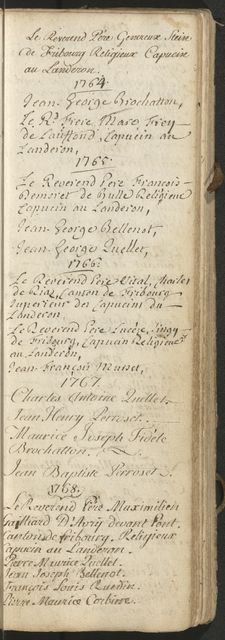 Le Reverend Père Genereux
de Fribourg Religieux Capucin
au Landeron.
1764.
Jean George Brochatton,
Le Rd Frere Marc Frey
de Lauffond, Capucin au
Landeron,
1765.
Le Reverend Pere François
de Religieux
Capucin au Landeron,
Jean George Bellenot,
Jean George Quellet,
1766.
Le Reverend Père Vital,
de Canton de Fribourg
Superieur des Capucins du
Landeron
Le Reverend Père
de Fribourg, Capucin Religieux
au Landeron,
Jean François Munier,
1767.
Charles Antoine Quellet.
Jean Henry Perroset.
Maurice Joseph Fidele
Brochatton.
Jean Baptiste Perroset.
1768.
Le Reverend Père Maximilien
D'Avry devant Pont.
Canton de fribourg. Religieux
Capucin au Landeron.
Pierre Maurice Quellet.
Jean Joseph Bellenot.
François Louis
Pierre Maurice